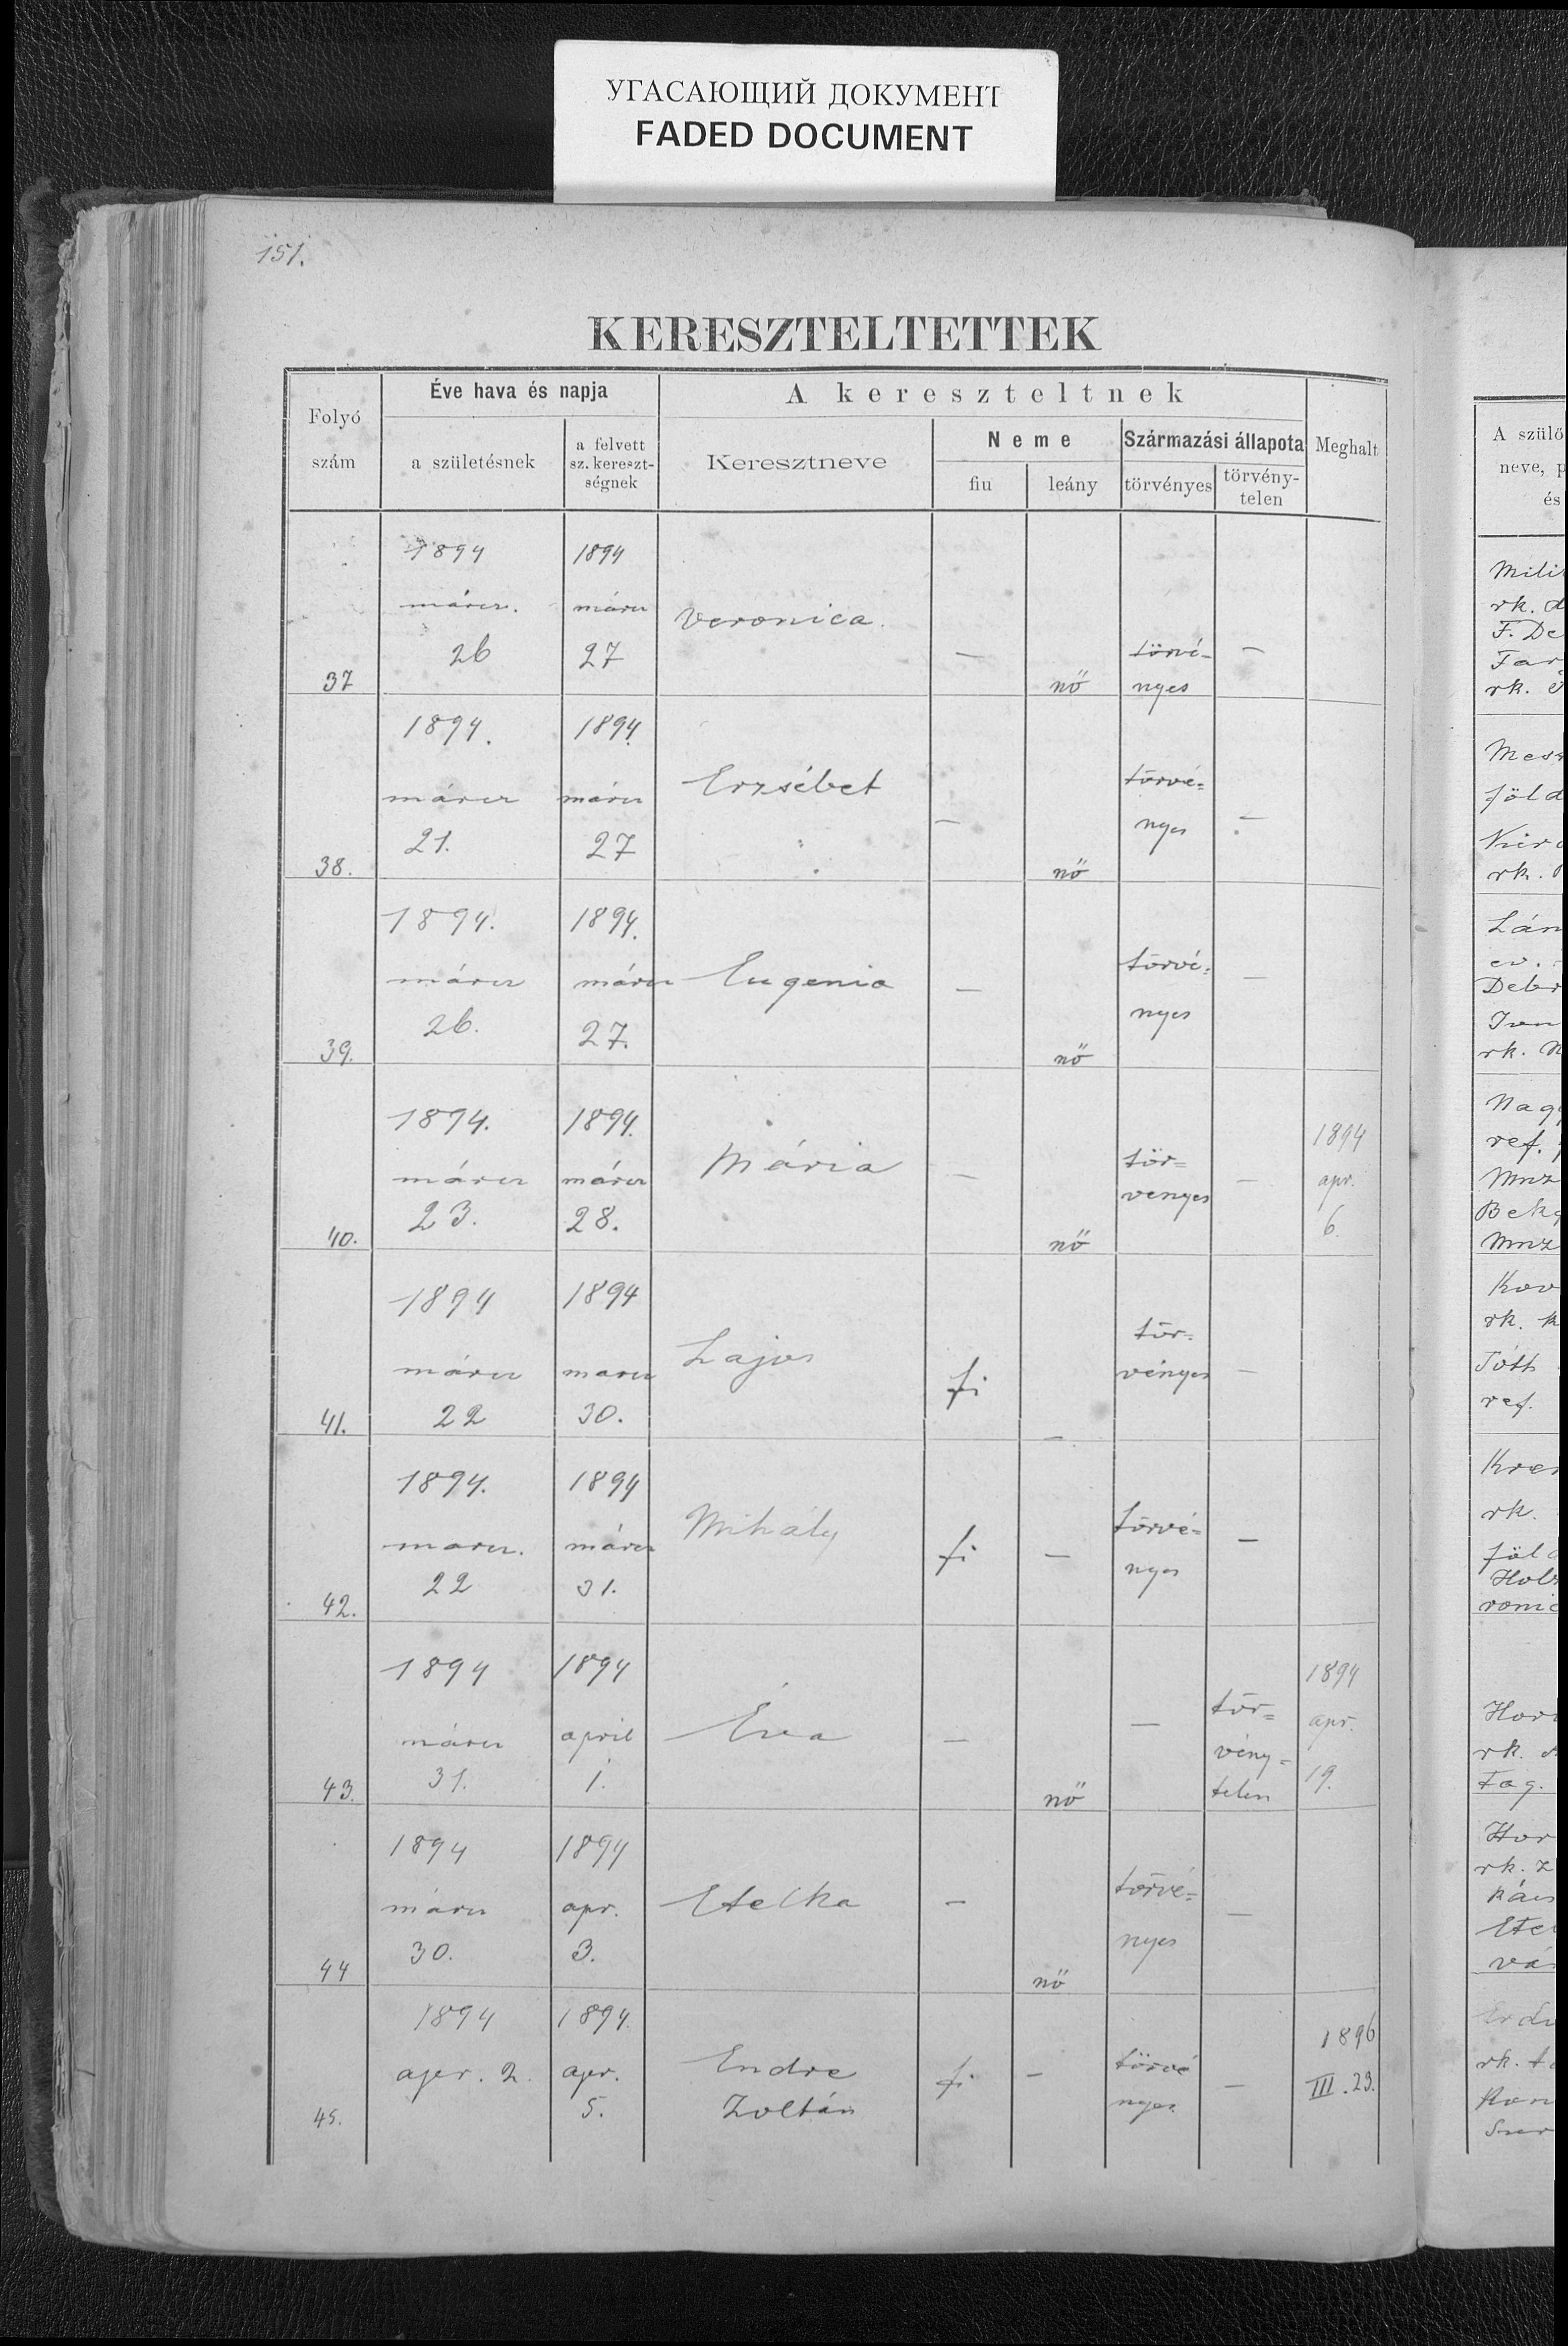 УГАСАЮЩИЙ ДОКУМЕНТ
FADED DOCUMENT
151.
KERESZTELTETTEK
Folyó szám
Éve hava és napja
a születésnek
a felvett sz. kereszt-ségnek
A kereszteltnek
Keresztneve
Neme
fiu
leány
Származási állapota
törvényes
törvény-telen
Meghalt
A szülő
neve, p
és
37 1894 márcz. 26 1894 márcz 27 Veronica. — nő törvé-nyes —
38. 1894. márcz 21. 1894. márcz 27 Erzsébet — nő törvé=nyes —
39. 1894. márcz 26. 1894. márcz 27. Eugenia — nő törvé=nyes —
40. 1894. márcz 23. 1894. márcz 28. Mária — nő tör=venyes — 1894 apr. 6.
41. 1894 márcz 22 1894 marcz 30. Lajos fi — tör=vényes —
42. 1894. marcz. 22 1894 márcz 31. Mihály fi — törvé=nyes —
43. 1894 márcz 31. 1894 april 1. Éva — nő — tör=vény=telen 1894 apr. 19.
44 1894 márcz 30. 1894 apr. 3. Etelka — nő törvé=nyes —
45. 1894 apr. 2. 1894. apr. 5. Endre Zoltán fi — törvé nyes — 1896 III. 23.
rk.
F. De
rk.
föld
rk.
Lán
ev.
Debr
rk.
Nagy
ref.
Kov
rk. k
Tóth
ref.
rk.
föl
rk.
Hor
rk.
rk.